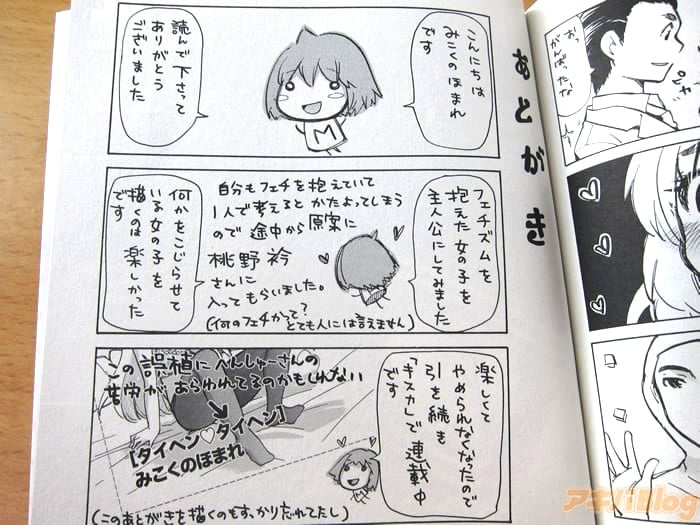 あとがき
こんにちは
みこくのほまれ
です
M
読んで下さって
ありがとう
ございました
フェチズムを
抱えた女の子を
主人公にしてみました
自分もフェチを抱えていて
1人で考えるとかたよってしまう
ので途中から原案に
桃野衿
さんに
入ってもらいました。
(何のフェチかって?
とても人には言えません)
何かをこじらせて
いる女の子を
描くのは楽しかった
です
楽しくて
やめられなくなったので
引き続き
「キスカ」で連載中
です
この誤植にへんしゅーさんの
苦労があらわれてるのかもしれない
[タイヘン♡タイヘン]
みこくのほまれ
(このあとがきを描くのもすっかり忘れてたし)
おっ
がんばったな
アキバBlog